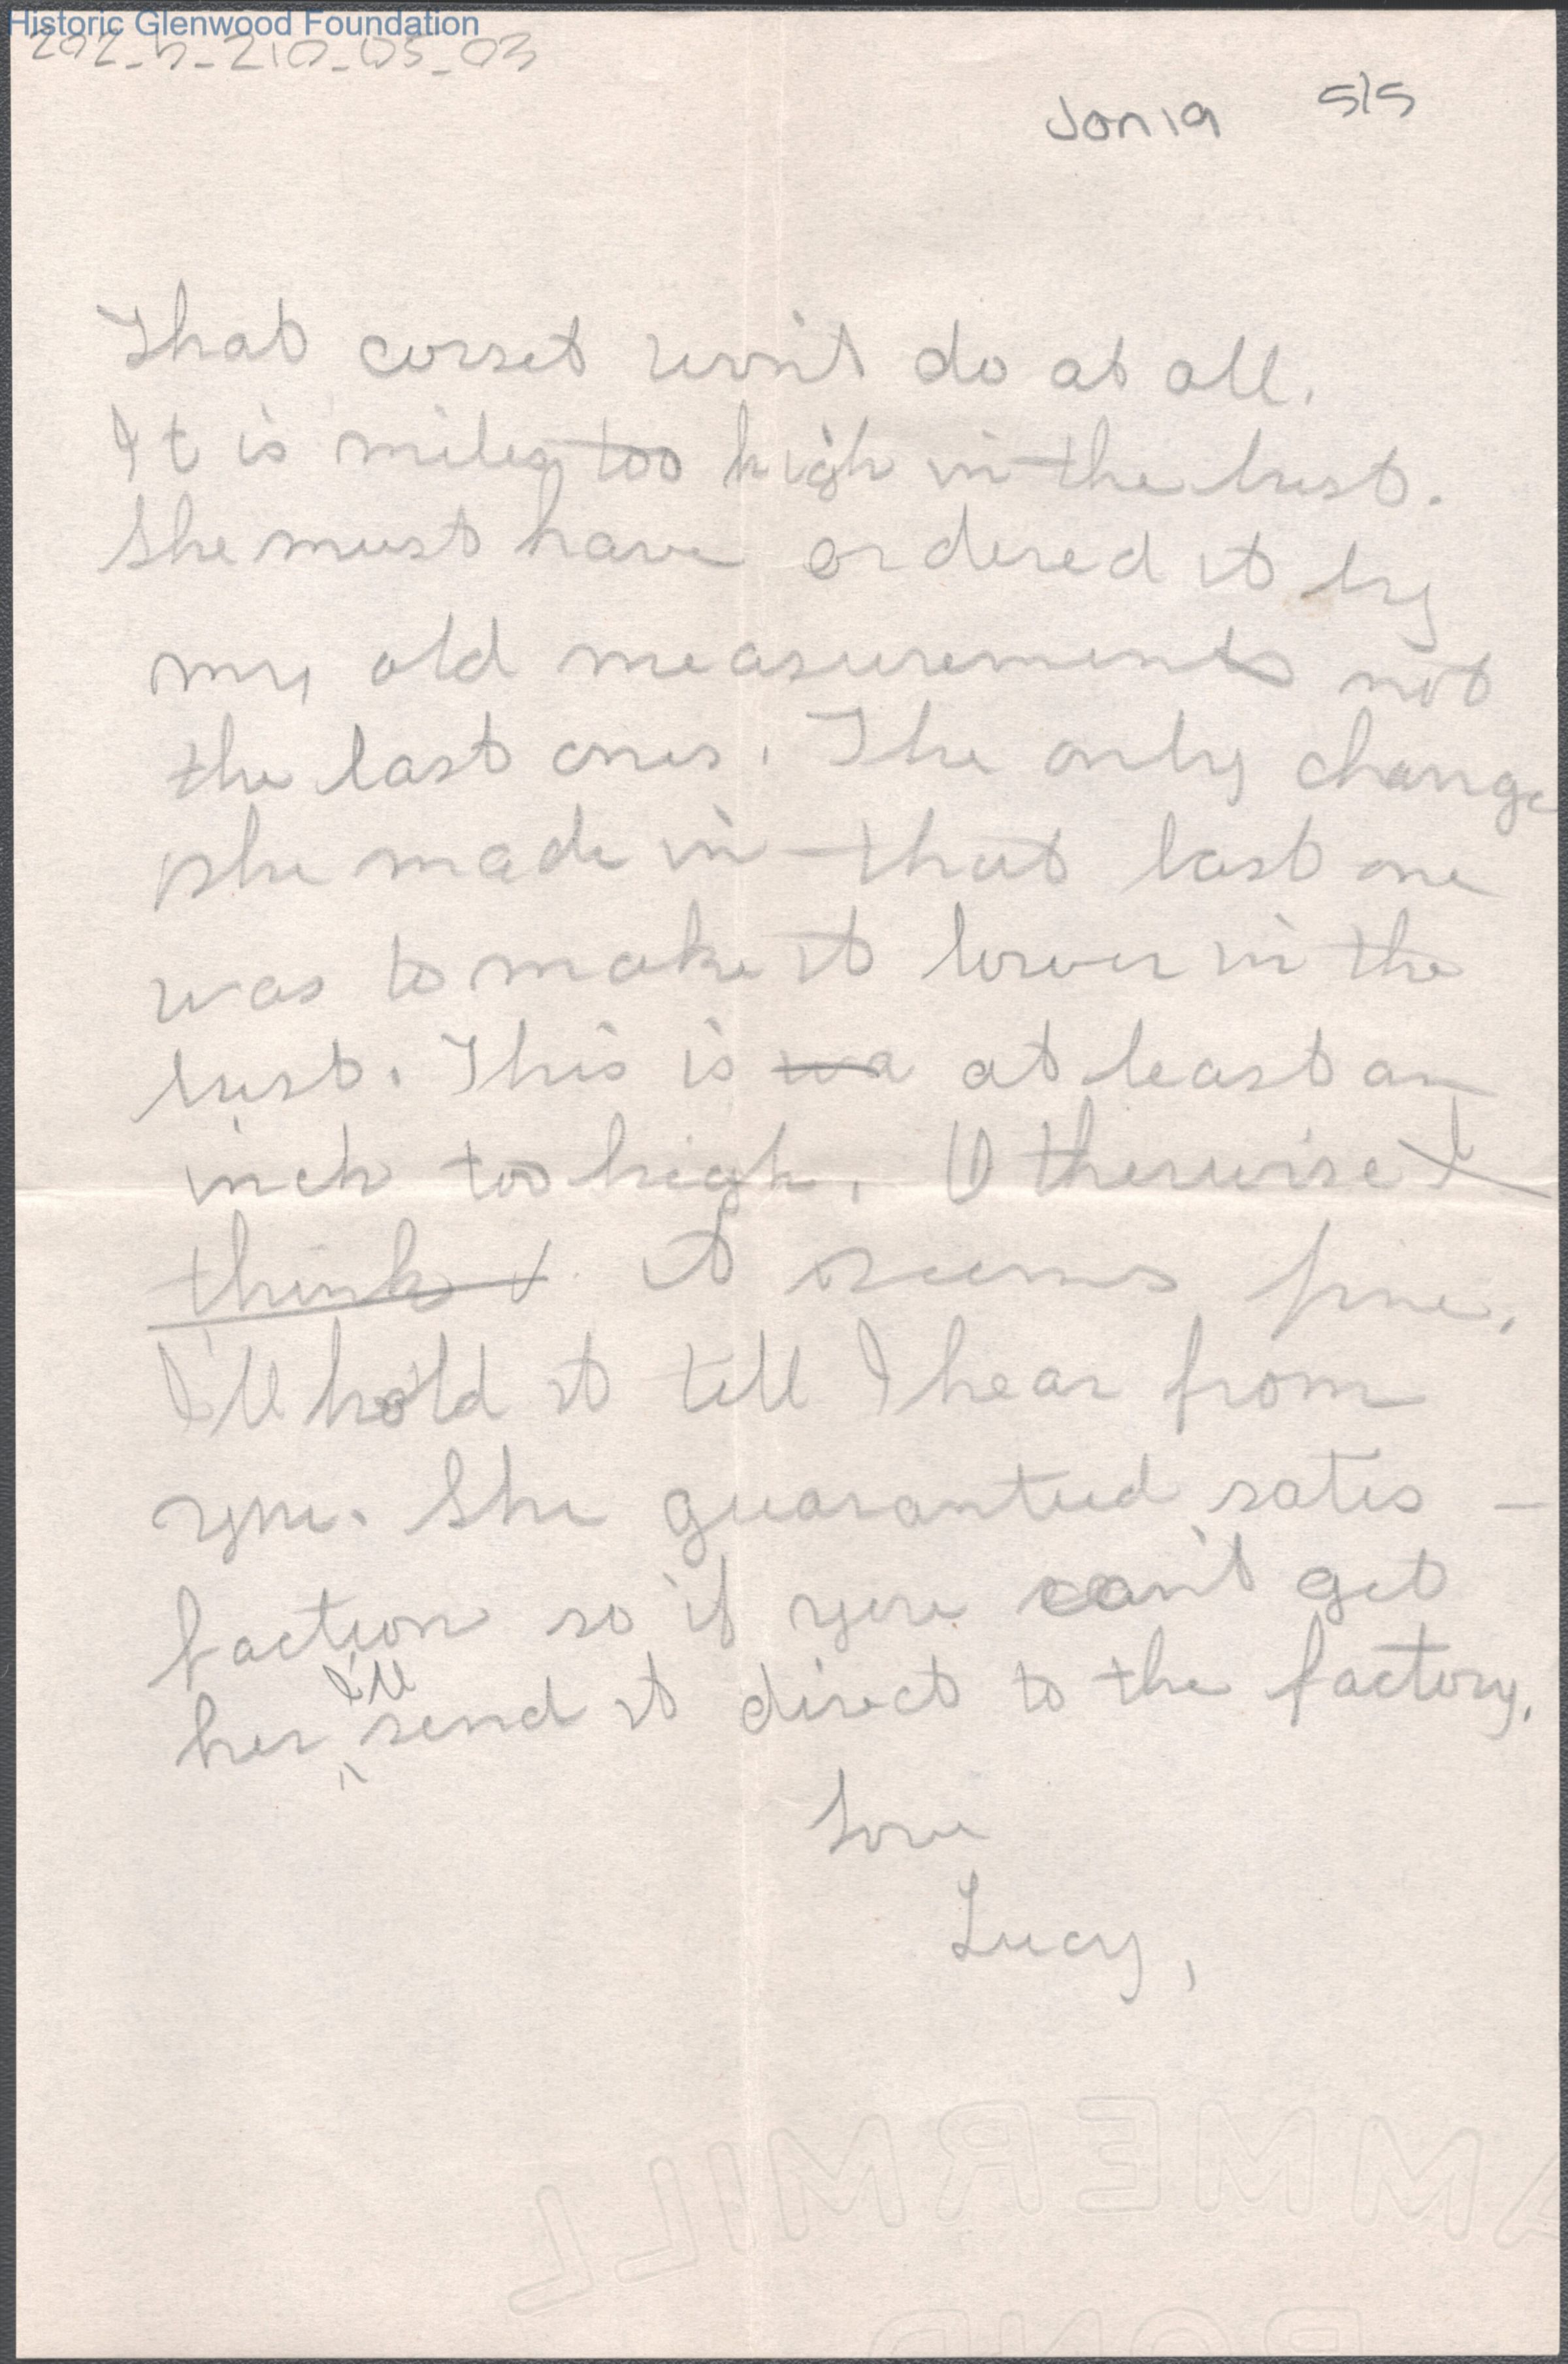 Historic Glenwood Foundation
202_b_210_05_03
Jan 19 5/5
That corset won't do at all.
It is miles too high in the bust.
She must have ordered it by
my old measurements not
the last ones. The only change
she made in that last one
was to make it lower in the
bust. This is wa at least an
inch too high. Otherwise I
think I it seems fine.
I'll hold it till I hear from
you. She guaranteed satis-
faction so if you can't get
her I'll send it direct to the factory.
Love
Lucy,
AMMERMILL
BOND